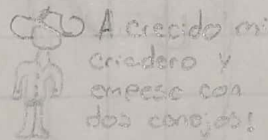 A crecido mi
criadero y
empese con
dos conejos!